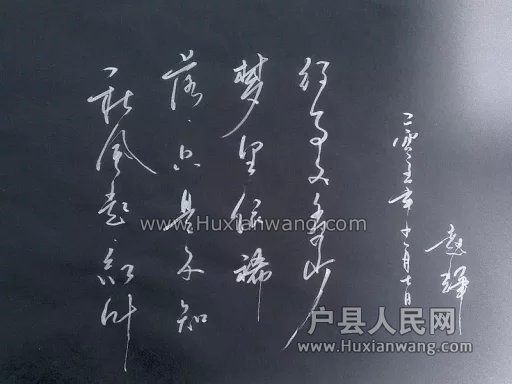 秋风起·红叶
落·只是不知
梦里依稀
又多少
二零一五年十一月七日
袁辉
www.Huxianwang.com
户县人民网
www.Huxianwang.com